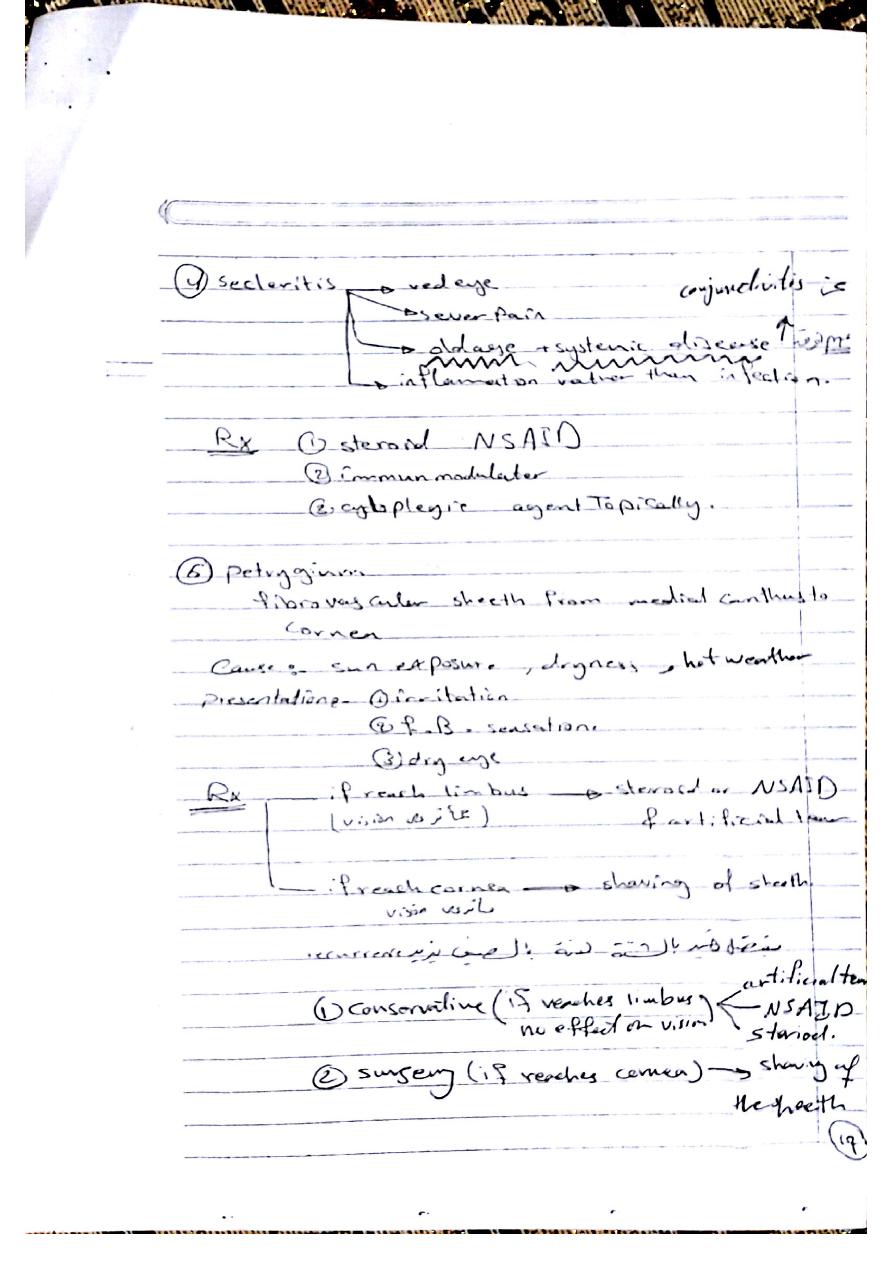 ④ secleritis → red eye
conjunctivitis is
→ sever pain
→ oldage + systemic disease ↑
→ inflamaton rather than infection.
Rx ① steroid NSAID
② immunmodulater
③ cyloplegic agent Topically.
⑤ petrygium
fibrovascular sheeth from medial canthus to
cornea
Cause :- sun exposure, dryness, hot weather
presentation:- ① irritation
② f.B. sensation.
③ dry eye
Rx if reach limbus → steroid or NSAID
(vision مأثر على) & artificial tear
if reach cornea → shaving of sheeth.
vision مأثر على
بالشتة لانه بالصيف يزيد recurrence.
① Conservative (if reaches limbus) artificial tea
no effect on vision NSAID
steriod.
② surgery (if reaches cornea) → shaving of
the sheeth
١٩